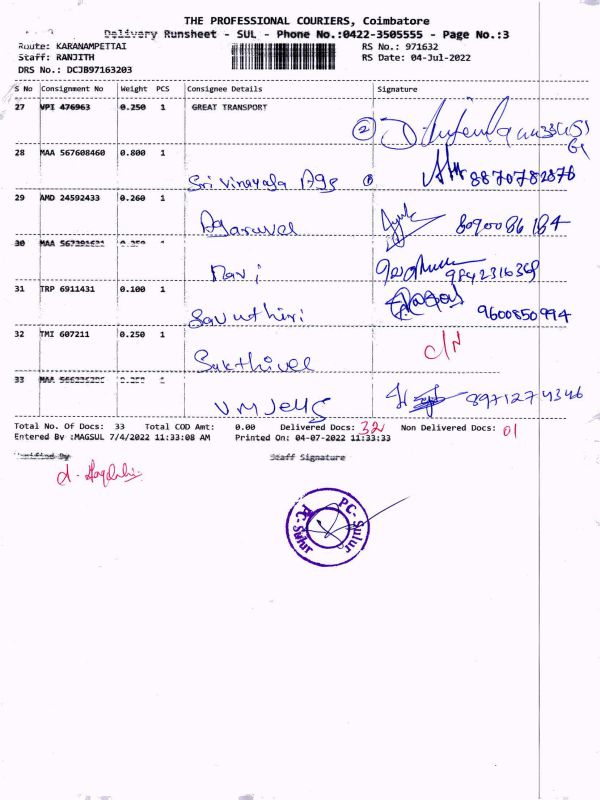 THE PROFESSIONAL COURIERS, Coimbatore
Delivery Runsheet - SUL - Phone No.:0422-3505555 - Page No.:3
Route: KARANAMPETTAI RS No.: 971632
Staff: RANJITH RS Date: 04-Jul-2022
DRS No.: DCJB97163203
S No Consignment No Weight PCS Consignee Details Signature
27 VPI 476963 0.250 1 GREAT TRANSPORT
28 MAA 567608460 0.800 1
Sri Vinayaga Ags 8870782876
29 AMD 24592433 0.260 1
Agaravel 8090086184
30 MAA 1
Mavi 9842316369
31 TRP 6911431 0.100 1
Savuthiri 9600850994
32 TMI 607211 0.250 1
Sakthivel C/N
33 MAA 1
VM Jells 8971274346
Total No. Of Docs: 33 Total COD Amt: 0.00 Delivered Docs: 32 Non Delivered Docs: 01
Entered By :MAGSUL 7/4/2022 11:33:08 AM Printed On: 04-07-2022 11:33:33
Verified By Staff Signature
PC-Sulur
PC-Sulur